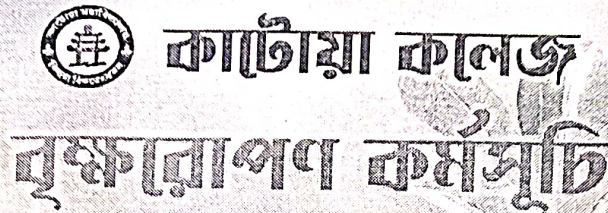 কাটোয়া কলেজ
বৃক্ষরোপণ কর্মসূচি